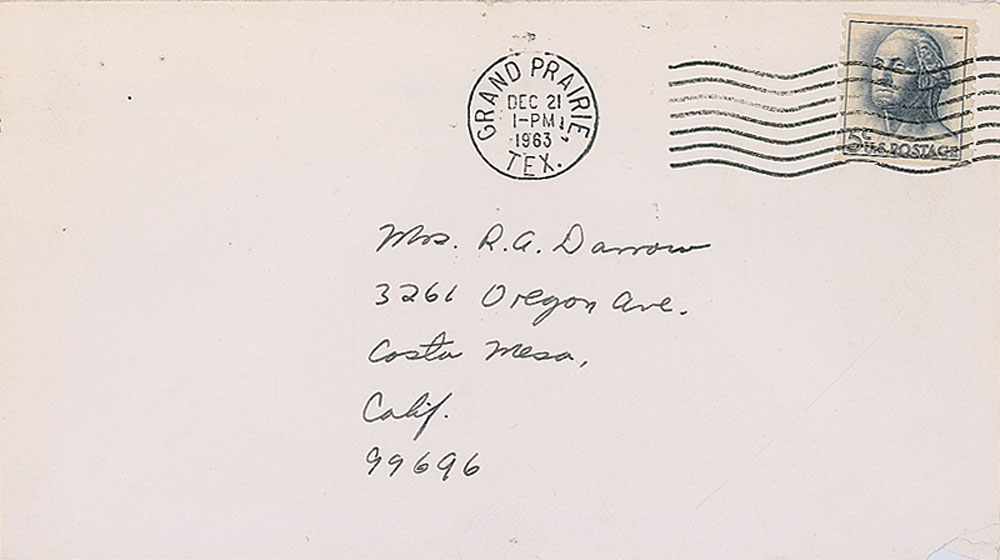 GRAND PRAIRIE,
DEC 21
1-PM
1963
TEX.
5c U.S. POSTAGE
Mrs. R.A. Darrow
3261 Oregon Ave.
Costa Mesa,
Calif.
99696